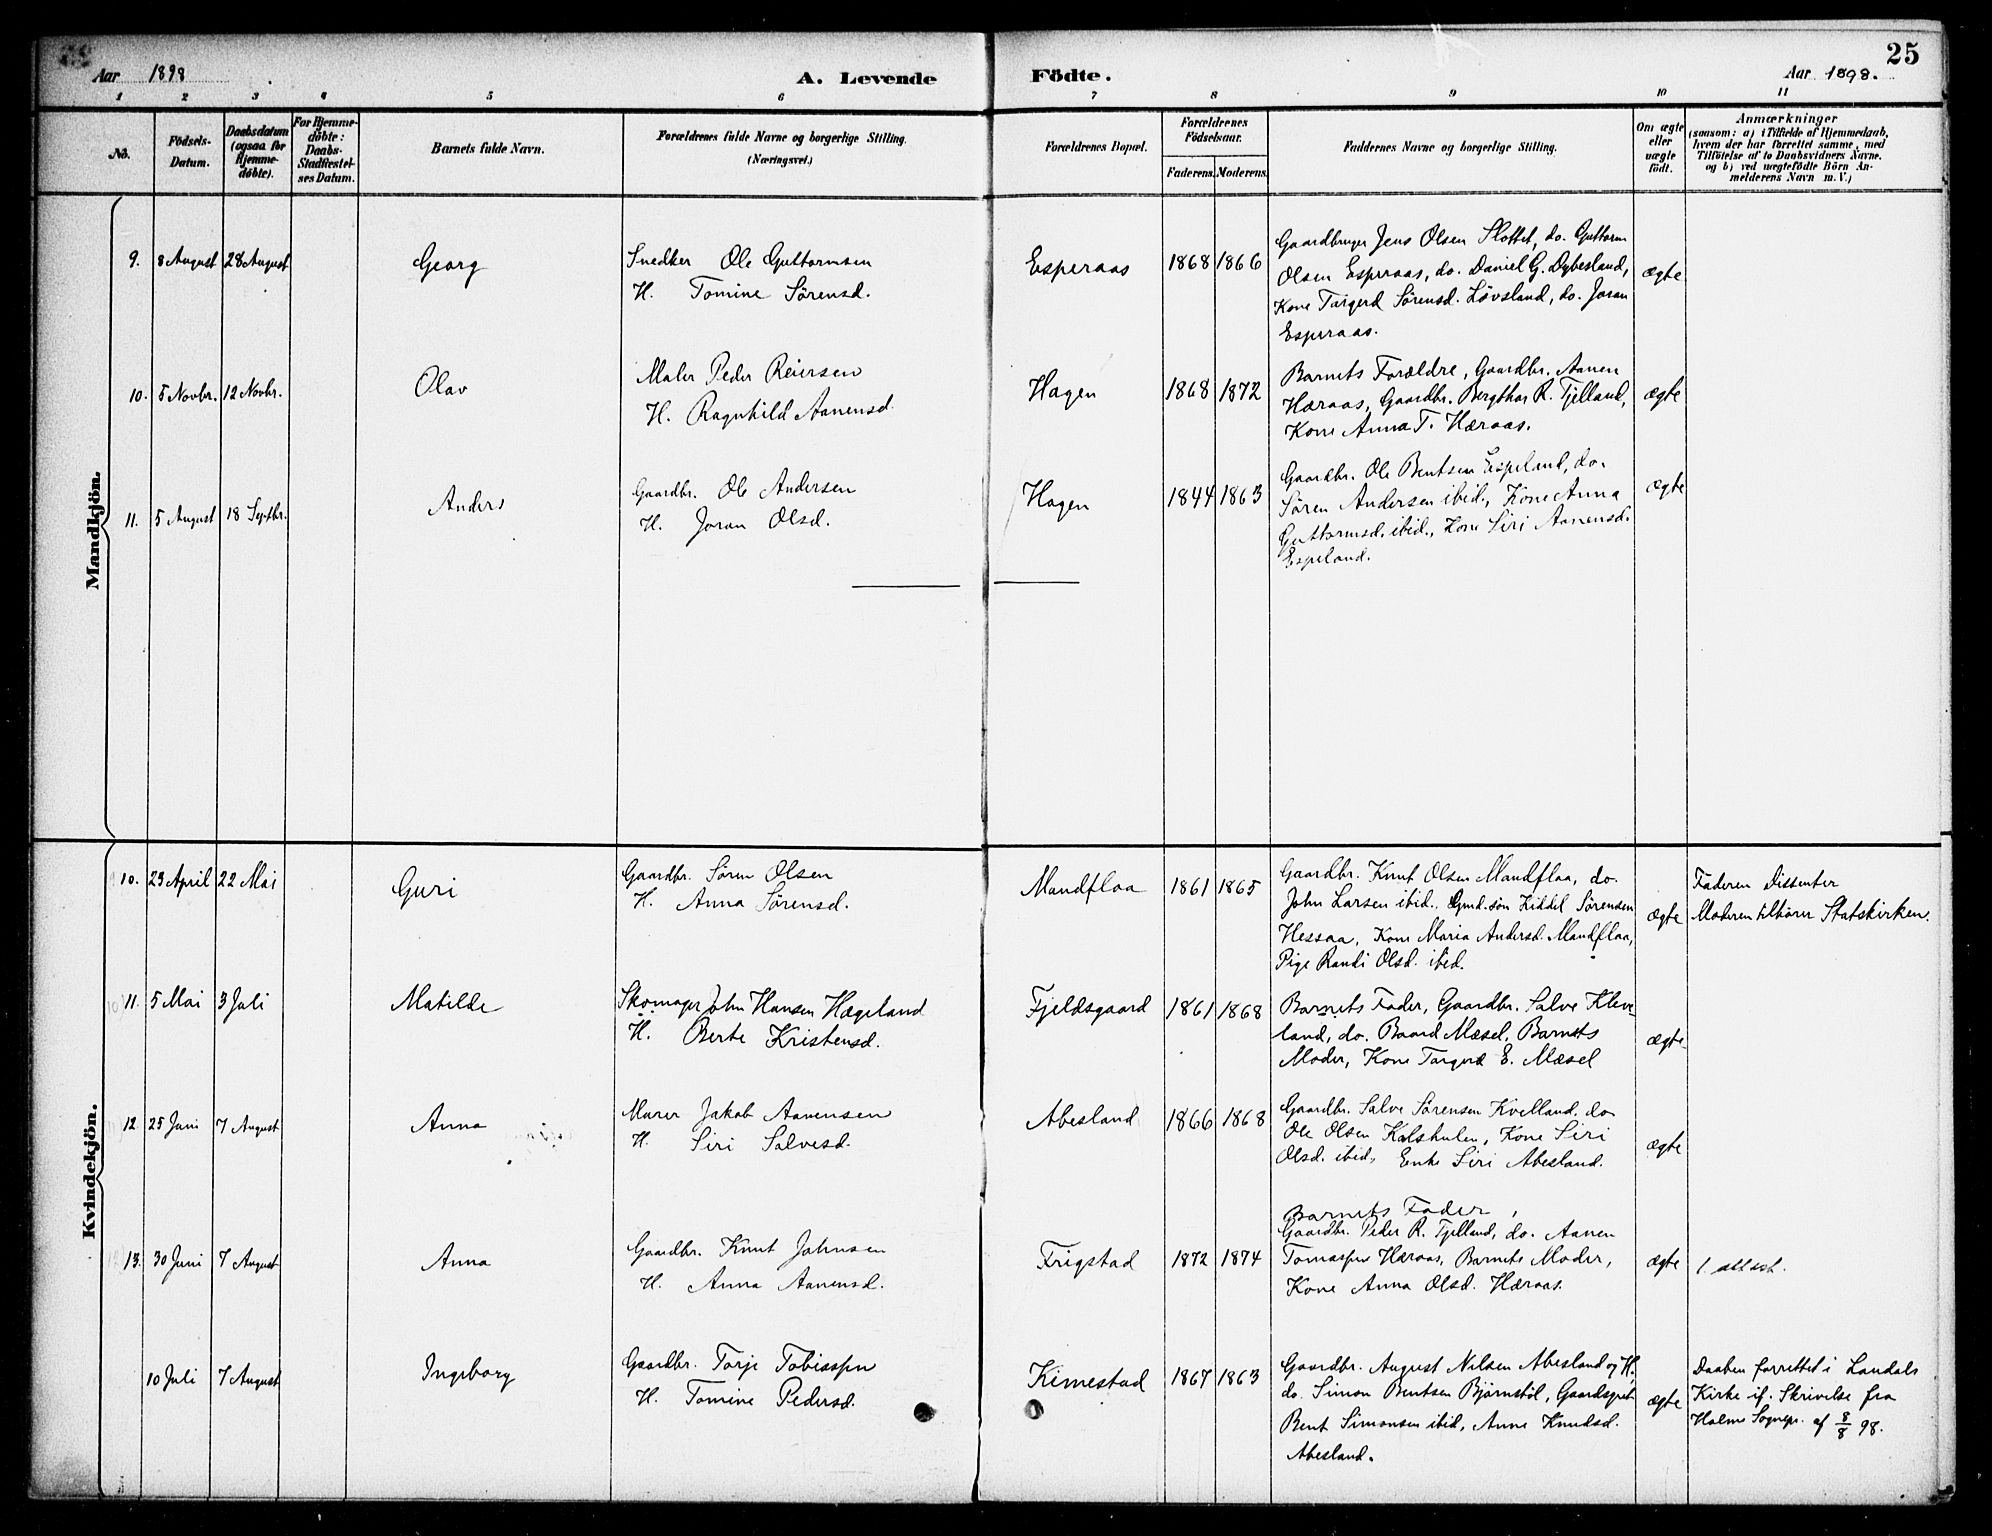 25
Aar 1898
A. Levende
Födte.
Aar 1898.
1 2 3 4 5 6 7 8 9 10 11
No.
Födsels-Datum.
Daabsdatum (ogsaa for Hjemmedöbte).
For Hjemmedöbte: Daabs-Stadfæstelses Datum.
Barnets fulde Navn.
Forældrenes fulde Navne og borgerlige Stilling.
(Næringsvei.)
Forældrenes Bopæl.
Forældrenes Födselsaar.
Faderens. Moderens.
Faddernes Navne og borgerlige Stilling.
Om ægte eller uægte födt.
Anmærkninger
(saasom: a) i Tilfælde af Hjemmedaab,
hvem der har forrettet samme, med
Tilföielse af to Daabsvidners Navne,
og b) ved uægtefödte Börn An-
melderens Navn m. V.)
Mandkjön.
9. 8 August 28 August Georg
Snedker Ole Guttormsen
H. Tomine Sörensd.
Esperaas 1868 1866
Gaardbruger Jens Olsen Slottet, do. Guttorm
Olsen Esperaas, do. Daniel G. Dybesland,
Kone Torgerd Sörensd. Lövsland, do. Joran
Esperaas.
ægte
10. 5 Novbr. 12 Novbr. Olav
Maler Peder Reiersen
H. Ragnhild Aanensd.
Hagen 1868 1872
Barnets Forældre, Gaardbr. Aanen
Hæraas, Gaardbr. Bergthor R. Tjelland,
Kone Anna T. Hæraas.
ægte
11. 5 August 18 Septbr. Anders
Gaardbr. Ole Andersen
H. Joran Olsd.
Hagen 1844 1863
Gaardbr. Ole Bentsen Espeland, do.
Sören Andersen ibid., Kone Anna
Guttormsd. ibid., Kone Siri Aanensd.
Espeland.
ægte
Kvindekjön.
10. 23 April 22 Mai Guri
Gaardbr. Sören Olsen
H. Anna Sörensd.
Mandflaa 1861 1865
Gaardbr. Knut Olsen Mandflaa, do.
John Larsen ibid., Gmd.sön Kiddel Sörensen
Hessaa, Kone Maria Andersd. Mandflaa,
Pige Randi Olsd. ibid.
ægte
Faderen Dissenter
Moderen tilhörer Statskirken.
11. 5 Mai 3 Juli Matilde
Skomager John Hansen Hægeland
H. Berte Kristensd.
Fjeldsgaard 1861 1868
Barnets Fader, Gaardbr. Salve Kleve-
land, do. Baard Mæsel, Barnets
Moder, Kone Torgerd E. Mæsel
ægte
12 25 Juni 7 August Anna
Murer Jakob Aanensen
H. Siri Salvesd.
Abesland 1866 1868
Gaardbr. Salve Sörensen Kvelland, do
Ole Olsen Kalshulen, Kone Siri
Olsd. ibid., Enke Siri Abesland.
ægte
13. 30 Juni 7 August Anna
Gaardbr. Knut Johnsen
H. Anna Aanensd.
Frigstad 1872 1874
Barnets Fader,
Gaardbr. Peder R. Tjelland, do. Aanen
Tomassen Hæraas, Barnets Moder,
Kone Anna Olsd. Hæraas.
ægte
1. attest.
10 Juli 7 August Ingeborg
Gaardbr. Torje Tobiassen
H. Tomine Pedersd.
Kimestad 1867 1863
Gaardbr. August Nilsen Abesland og H.
do. Simon Bentsen Björnstöl, Gaardsgut
Bent Simonsen ibid, Anne Knudsd.
Abesland.
ægte
Daaben forrettet i Laudals
Kirke if. Skrivelse fra
Holme Sognepr. af 8/8 98.